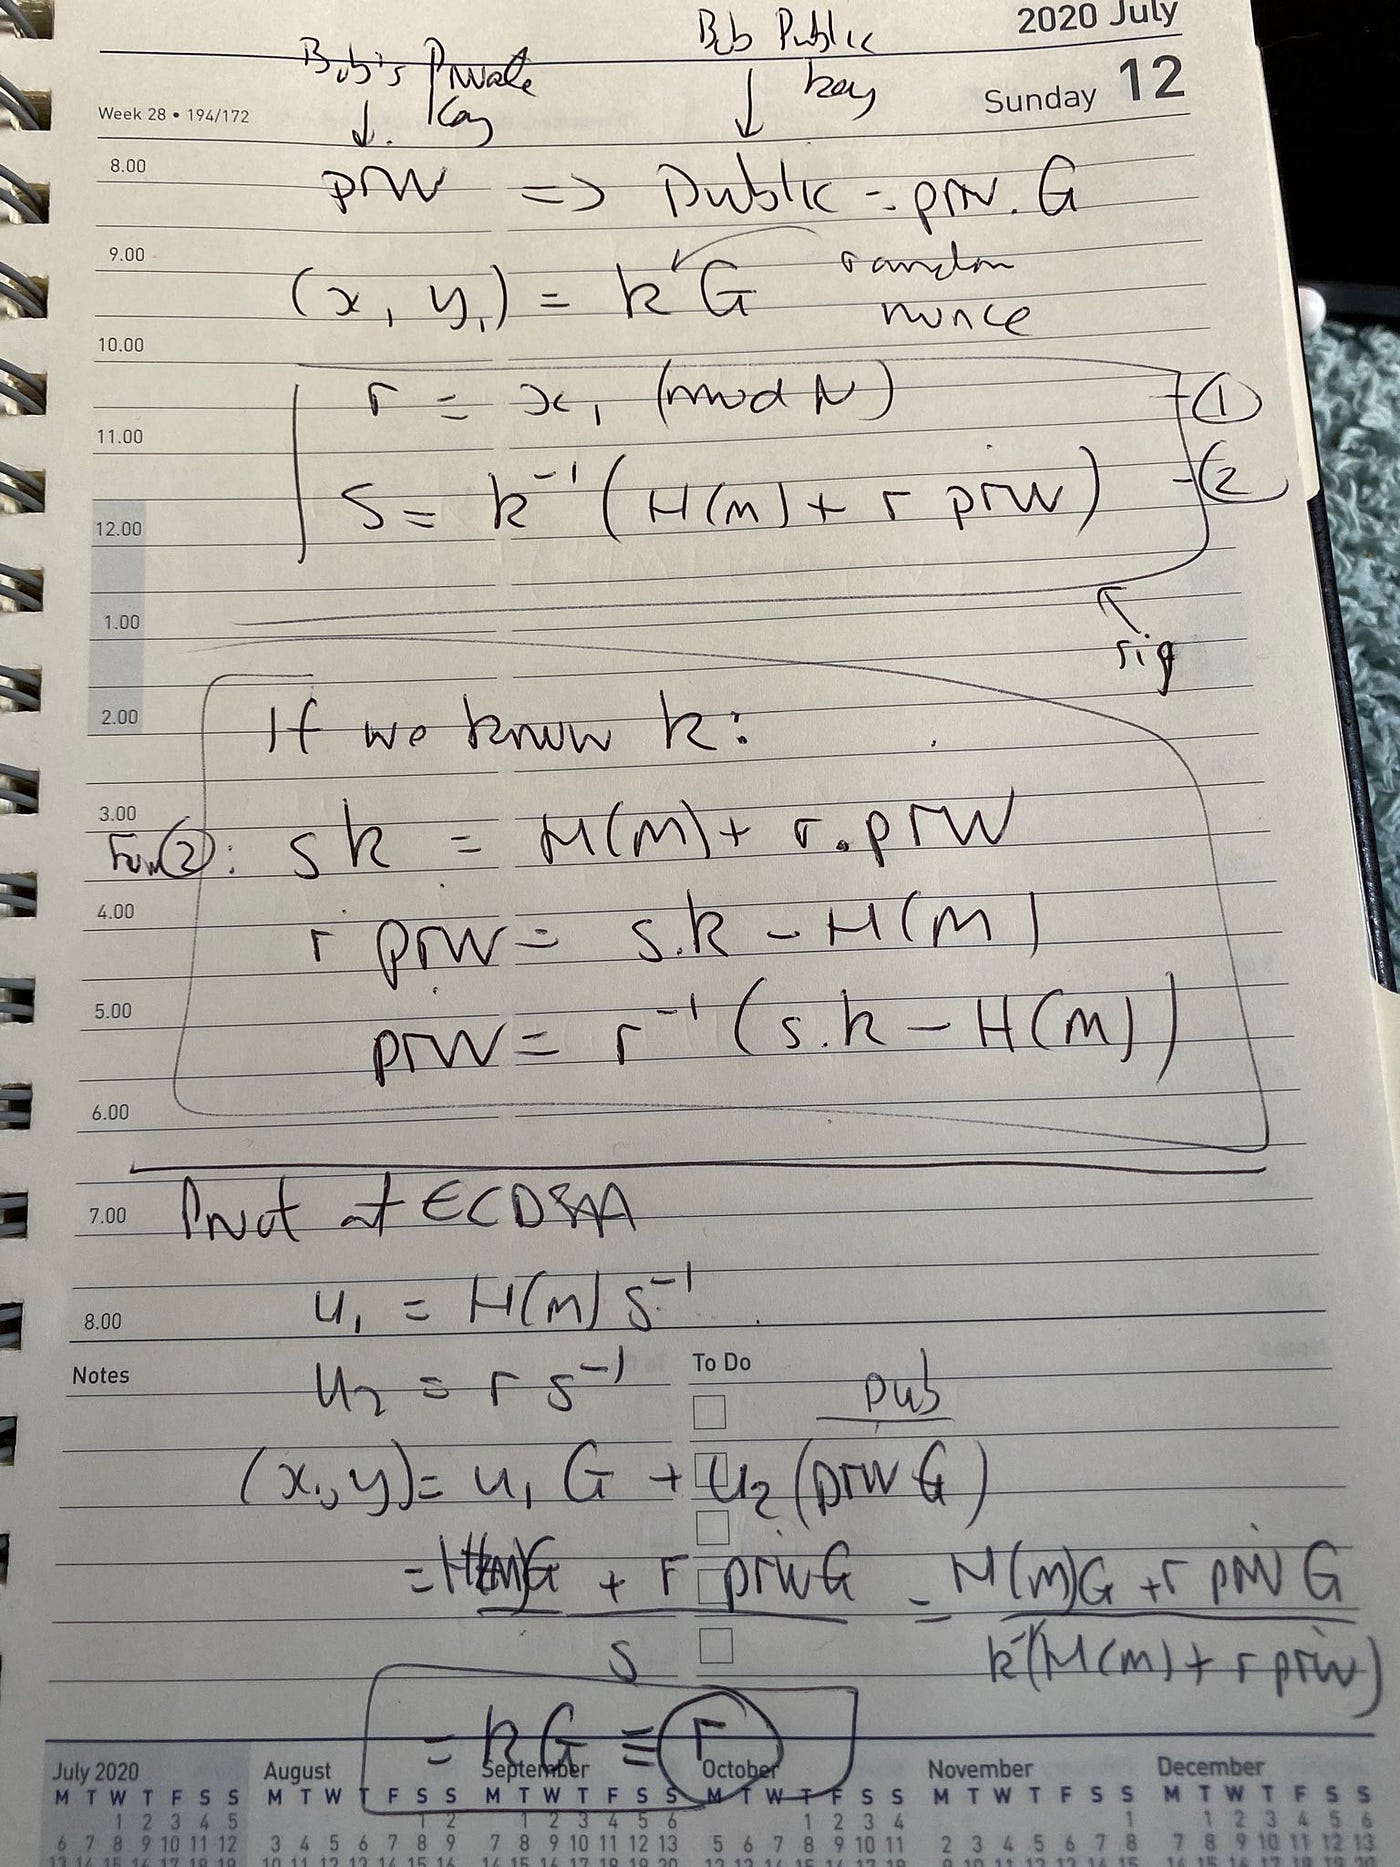 2020 July
Bob's Private Key
Bob Public key
Week 28 • 194/172
Sunday 12
8.00
priv => Public = priv. G
9.00
(x, y₁) = k G random nonce
10.00
r = x₁ (mod N) - ①
11.00
s = k⁻¹ (H(m) + r priv) - ②
12.00
1.00
sig
If we know k:
2.00
3.00
From ②: s k = H(m) + r . priv
4.00
r priv = s.k - H(m)
5.00
priv = r⁻¹ (s.k - H(m))
6.00
7.00
Proof of ECDSA
u₁ = H(m) s⁻¹
8.00
Notes
u₂ = r s⁻¹
To Do
pub
(x₁, y) = u₁ G + u₂ (priv G)
= H(m)G + r priv G = H(m)G + r priv G
s k⁻¹(H(m) + r priv)
= k G ≡ r
July 2020 August September October November December
M T W T F S S M T W T F S S M T W T F S S M T W T F S S M T W T F S S M T W T F S S
1 2 3 4 5 1 2 1 2 3 4 5 6 1 2 3 4 1 1 2 3 4 5 6
6 7 8 9 10 11 12 3 4 5 6 7 8 9 7 8 9 10 11 12 13 5 6 7 8 9 10 11 2 3 4 5 6 7 8 7 8 9 10 11 12 13